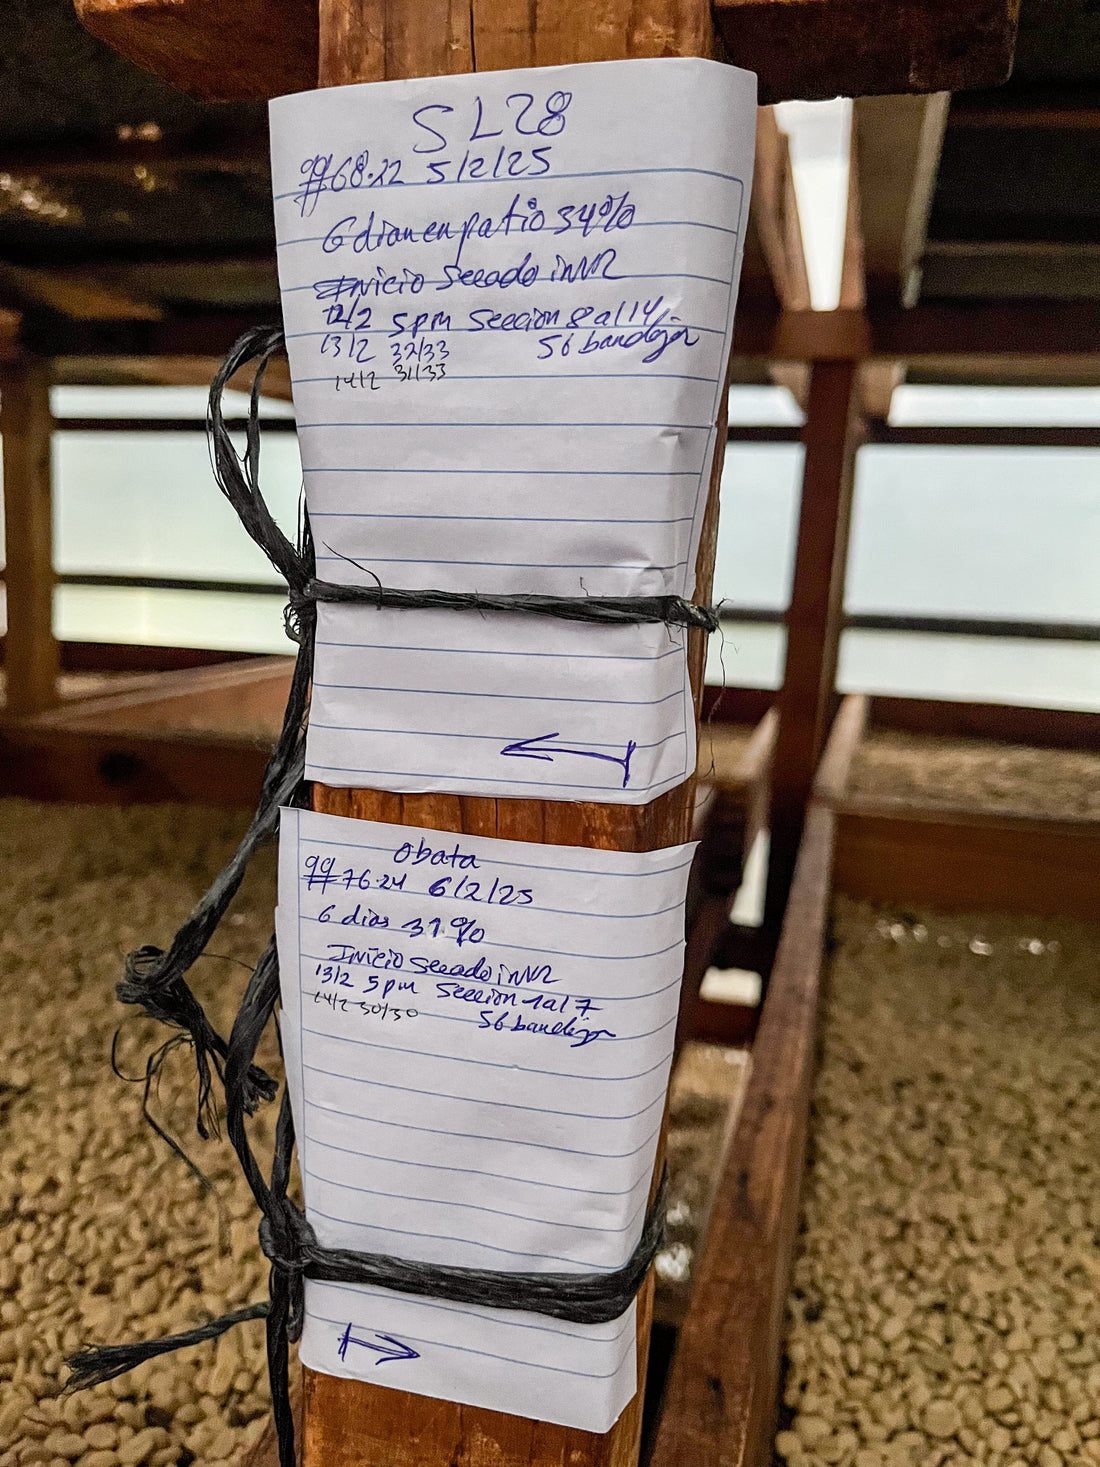 SL28
qq#68.22 5/2/25
6 dian en patio 34%
Inicio Secado inVR
12/2 5pm Seccion 8 al 14
13/2 32/33 56 bandejas
14/2 31/33
obata
qq#76.24 6/2/25
6 dias 31%
Inicio Secado inVR
13/2 5pm Seccion 1 al 7
14/2 30/30 56 bandejas